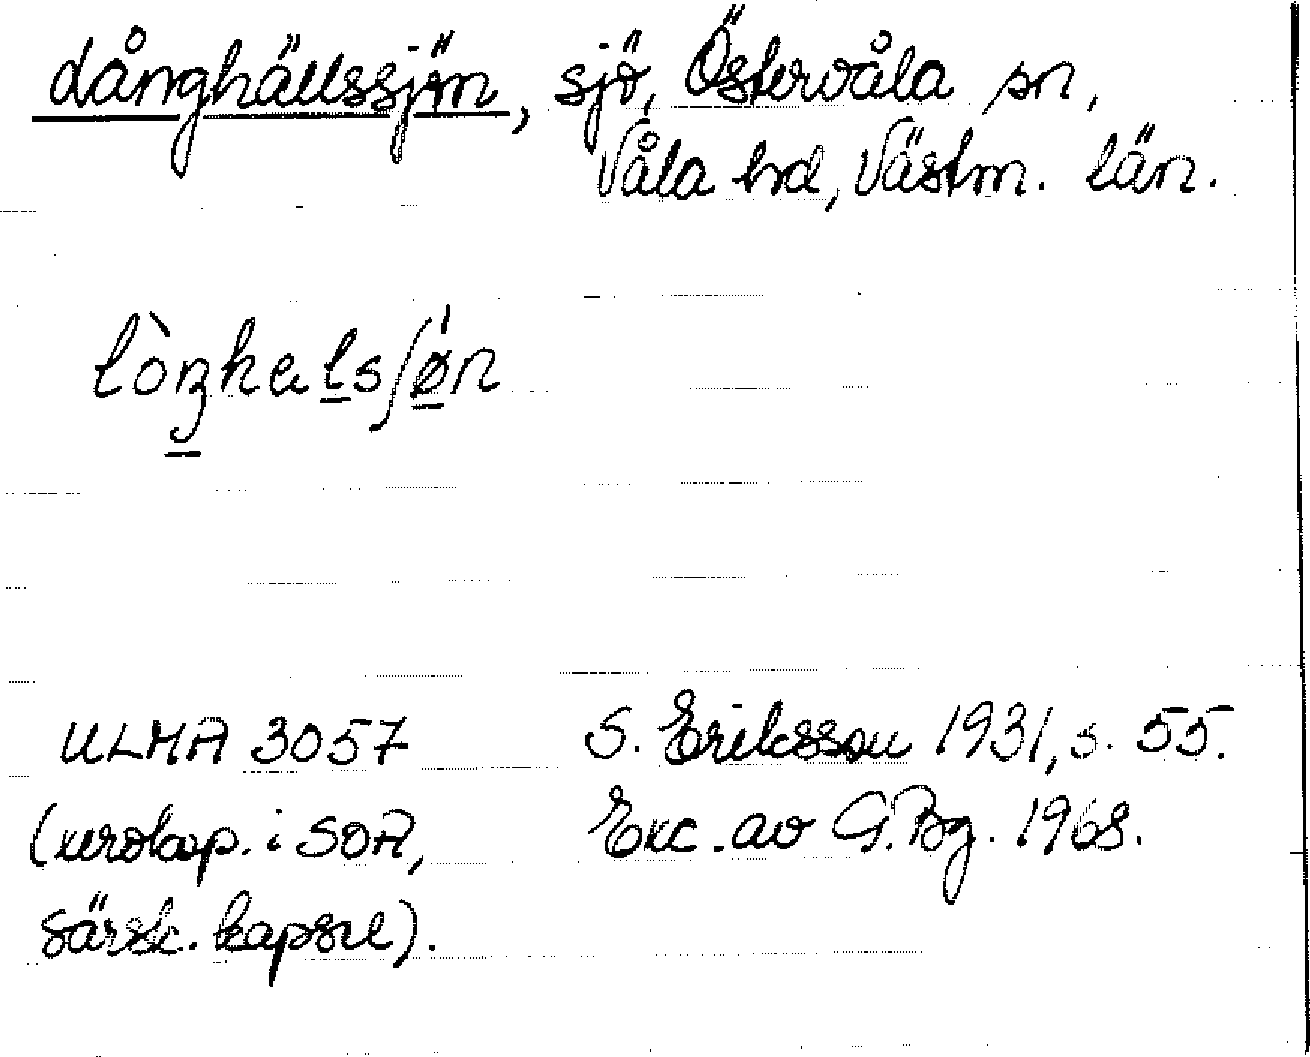 Långhällssjön, sjö, Östervåla sn,
Våla hd, Västm. län.
lòŋhalsʃø̀n
ULMA 3057 S. Eriksson 1931, s. 55.
(xerokop. i SOA, Exc. av G.Bg. 1968.
särsk. kapsel).